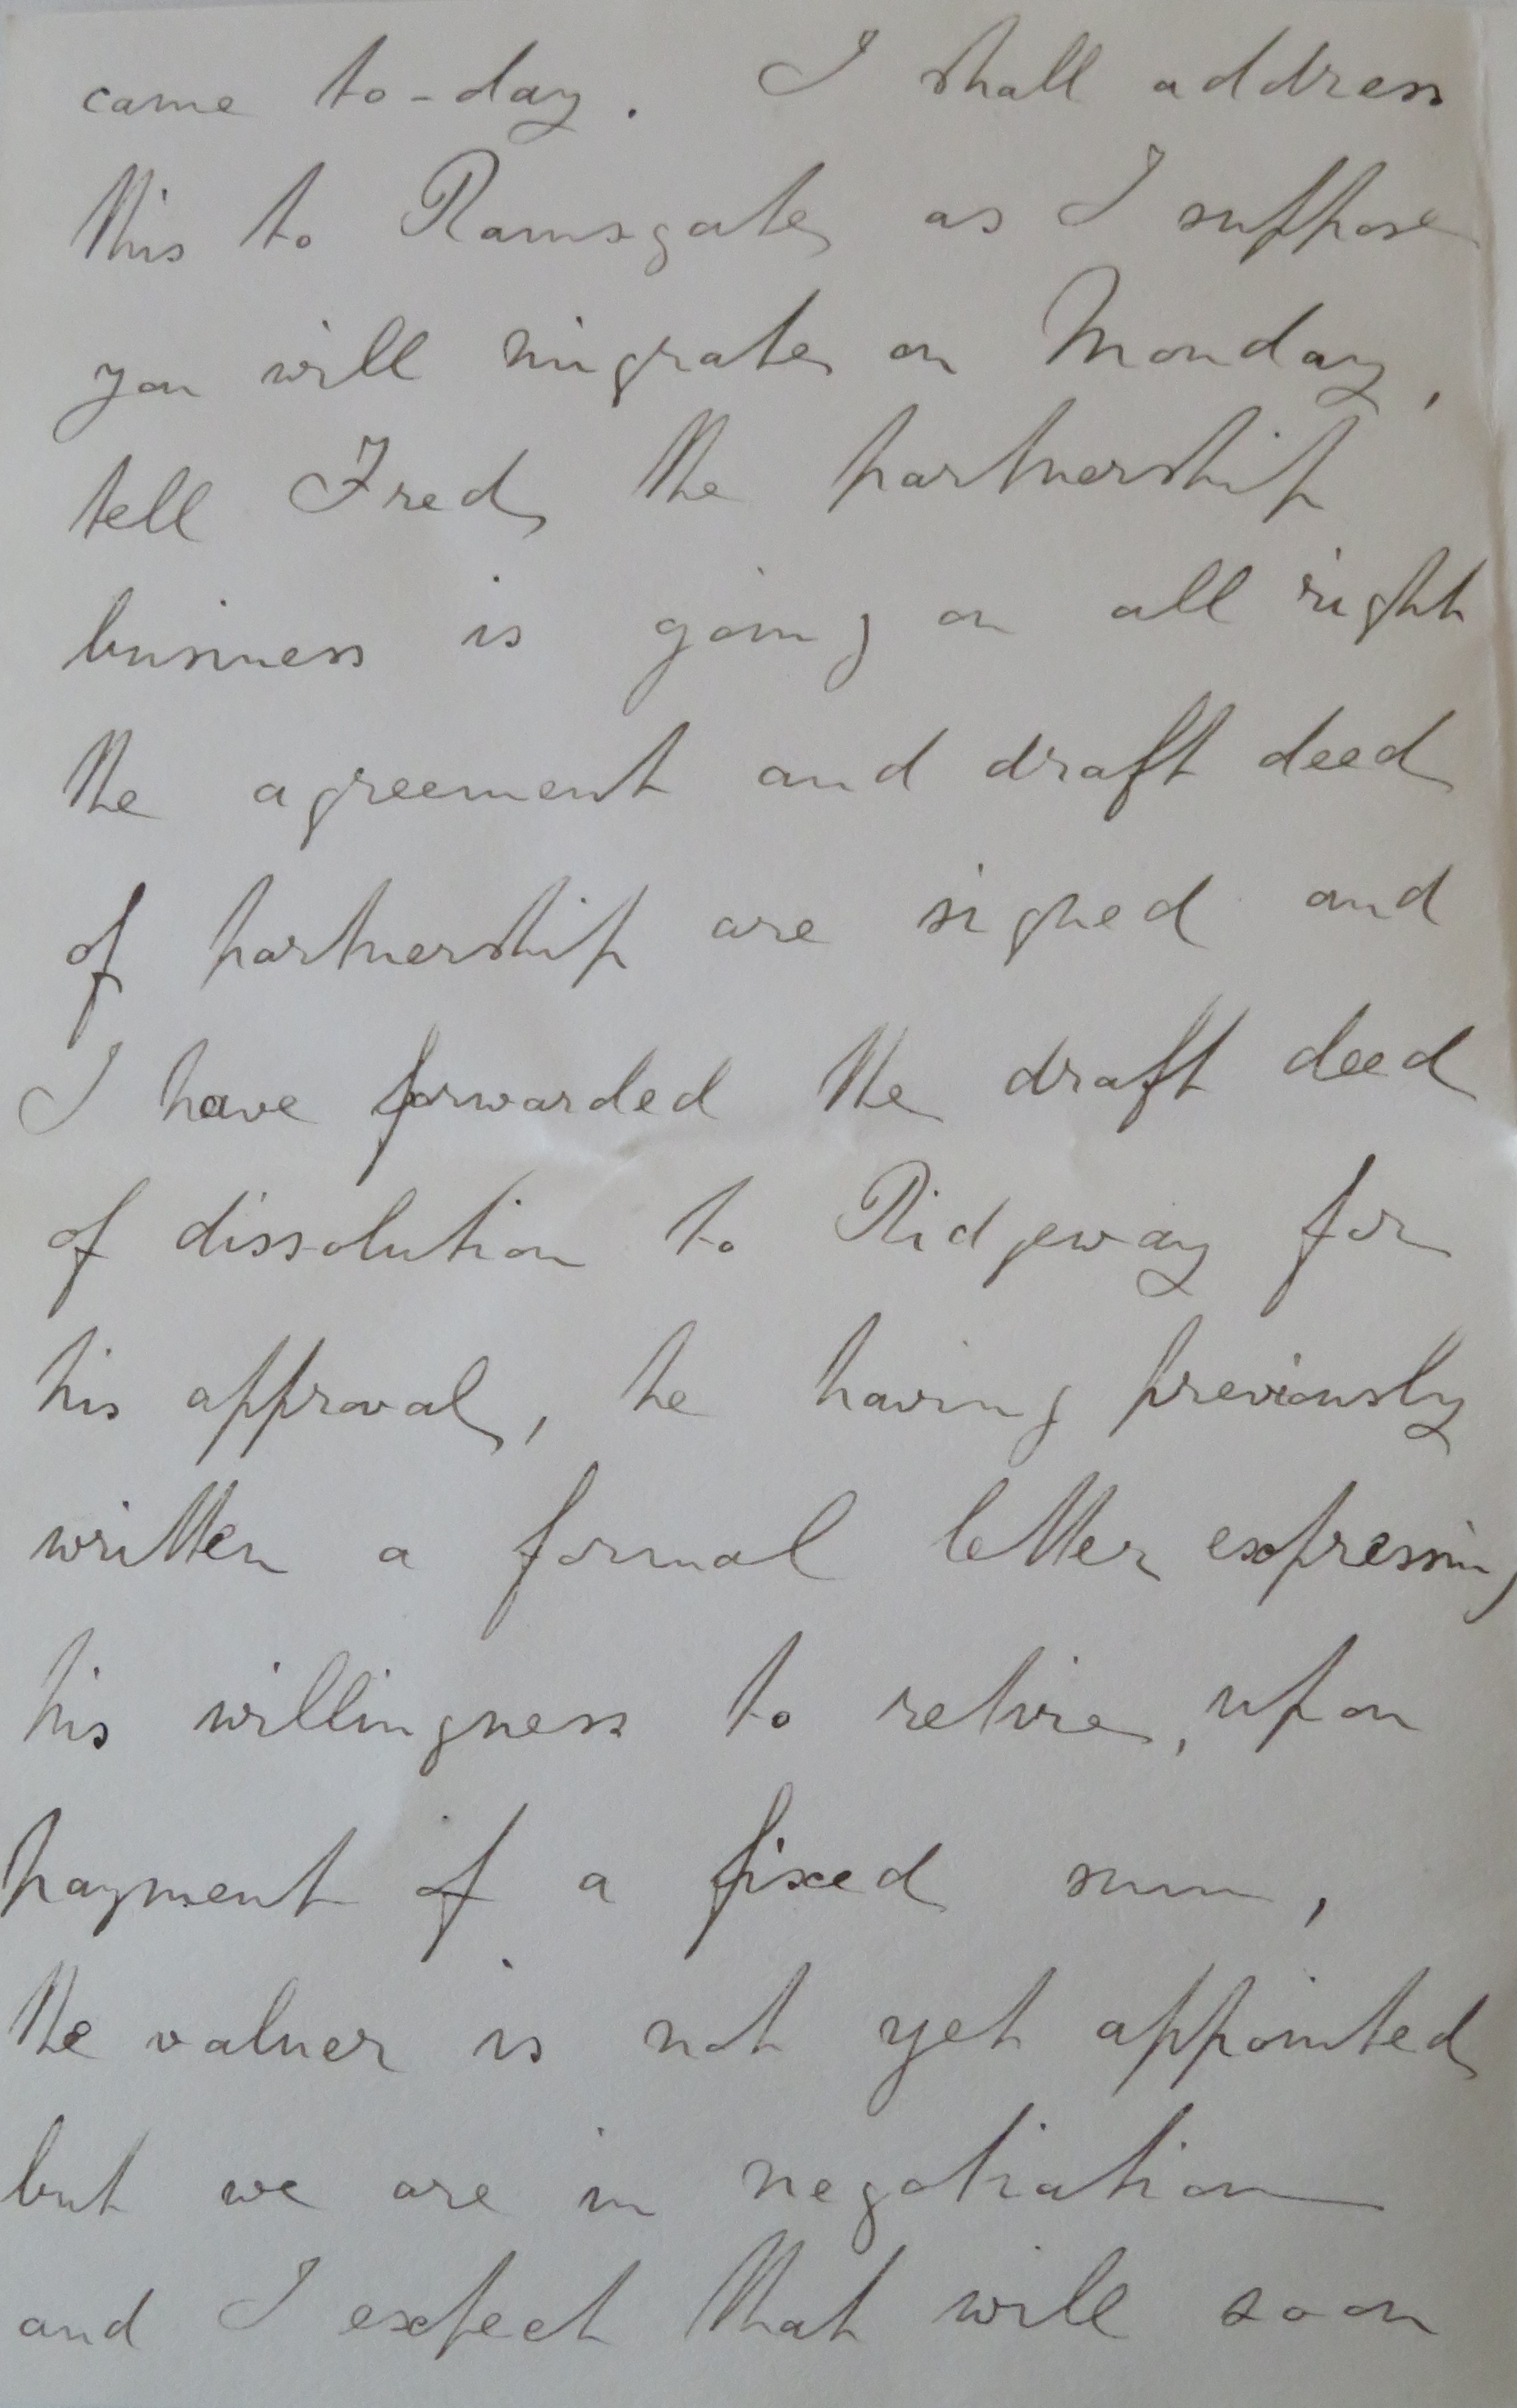 came to-day. I shall address
this to Ramsgate as I suppose
you will migrate on Monday,
tell Fred the partnership
business is going on all right
the agreement and draft deed
of partnership are signed and
I have forwarded the draft deed
of dissolution to Ridgeway for
his approval, he having previously
written a formal letter expressing
his willingness to retire, upon
payment of a fixed sum,
the valuer is not yet appointed
but we are in negotiation
and I expect that will soon